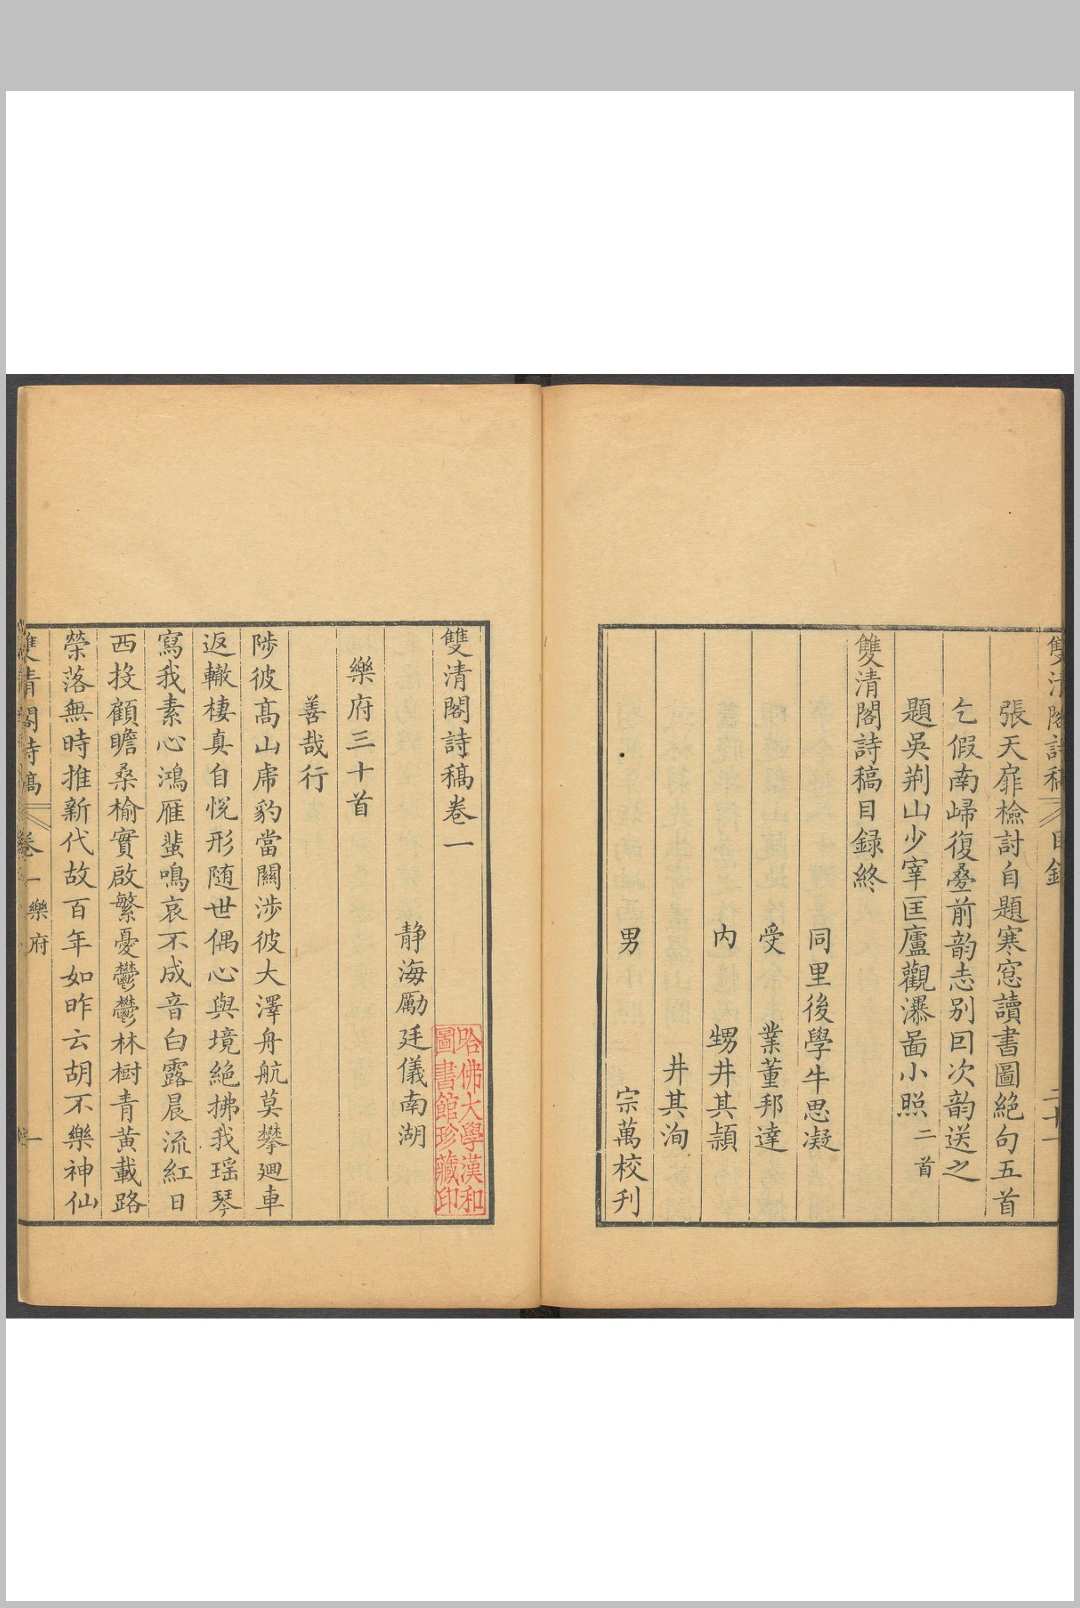 雙清閣詩稿 目錄 二十一
張天扉檢討自題寒窓讀書圖絕句五首
乞假南歸復疊前韵志别囙次韵送之
題吳荆山少宰匡廬觀瀑啚小照二首
雙清閣詩稿目録終
同里後學牛思凝
受業董邦達
内甥井其頴
井其洵
男宗萬校刋
雙清閣詩稿卷一
静海勵廷儀南湖
哈佛大學漢和
圖書館珍藏印
樂府三十首
善哉行
陟彼髙山虎豹當關涉彼大澤舟航莫攀廻車
返轍棲真自悦形随世偶心與境絶拂我瑶琴
寫我素心鴻雁蜚鳴哀不成音白露晨流紅日
西投顧瞻桑榆實啟繁憂鬱鬱林樹青黄載路
榮落無時推新代故百年如昨云胡不樂神仙
雙清閣詩稿 卷一樂府 一